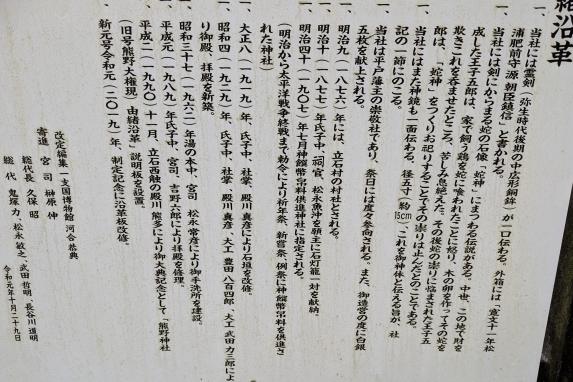 緒沿革
一、当社には霊剣（弥生時代後期の中広形銅鉾）が一口伝わる。外箱には「寛文十一年松
浦肥前守源 朝臣鎮信」と書かれる。
一、当社には剣にからまる蛇の石像「蛇神」にまつわる伝説がある。中世、この地で財を
成した王子五郎は、家で飼う鶏を蛇に喰われたことに怒り、木の卵を作ってその蛇を
欺きこれを呑ませたところ、苦しみ息絶えた。その後蛇の祟りに悩まされた王子五
郎は、「蛇神」をつくりお祀りすることでその祟りは止んだとのことである。
一、当社にはまた神鏡も一面伝わる。径五寸（約15cm）、これを御神体と伝える旨が、社
記の一節にのこる。
一、当社は平戸藩主の崇敬社であり、祭日には度々参向される。また、御造営の度に白銀
五枚を献上される。
一、明治九（一八七六）年には、立石村の村社とされる。
一、明治十（一八七七）年氏子中、祠官、松永魚沖を願主に石灯籠一対を献納。
一、明治四十（一九〇七）年七月神饌幣帛料供進神社に指定される。
（明治から太平洋戦争終戦まで勅令により祈年祭、新嘗祭、例祭に神饌幣帛料を供進さ
れた神社）
一、大正八（一九一九）年、氏子中、社掌、殿川真彦により石垣を改修。
一、昭和四（一九二九）年、氏子中、社掌、殿川真彦、大工 豊田八百四郎、大工 武田力三郎によ
り御殿、拝殿を新築。
一、昭和三十七（一九六二）年湯の本中、宮司 松永常彦により御手洗所を建設。
一、平成元（一九八九）年氏子中、宮司、吉野六郎により拝殿を修理。
一、平成二（一九九〇）十一月、立石西触の殿川熊多により御大典記念として「熊野神社
（旧号熊野大権現）由緒沿革」説明板を設置。
一、新元号令和元（二〇一九）年、制定記念に沿革板改修。
改定編集 一支国博物館 河合恭典
寄進 宮司 榊原伸
総代長 久保昭
総代 鬼塚力、松永敏之、武田哲明、長谷川道明
令和元年十月二十九日